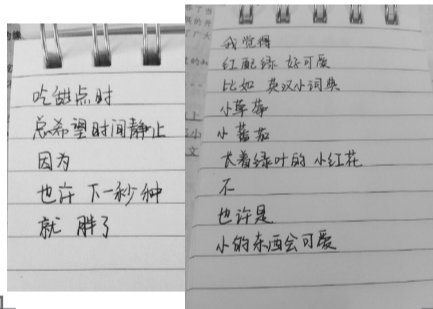 吃甜点时
总希望时间静止
因为
也许 下一秒种
就 胖了
我觉得
红配绿 好可爱
比如 英汉小词典
小草莓
小番茄
长着绿叶的 小红花
不
也许是
小的东西会可爱